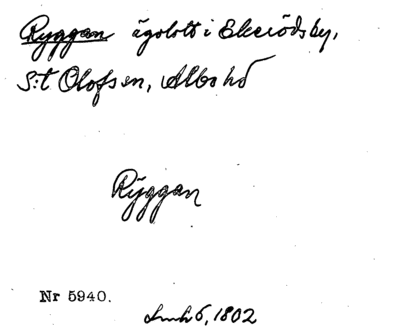 Ryggan ägolott i Eleriödsby,
S:t Olofs sn, Albo hd
Ryggan
Nr 5940.
Lmh 6, 1802